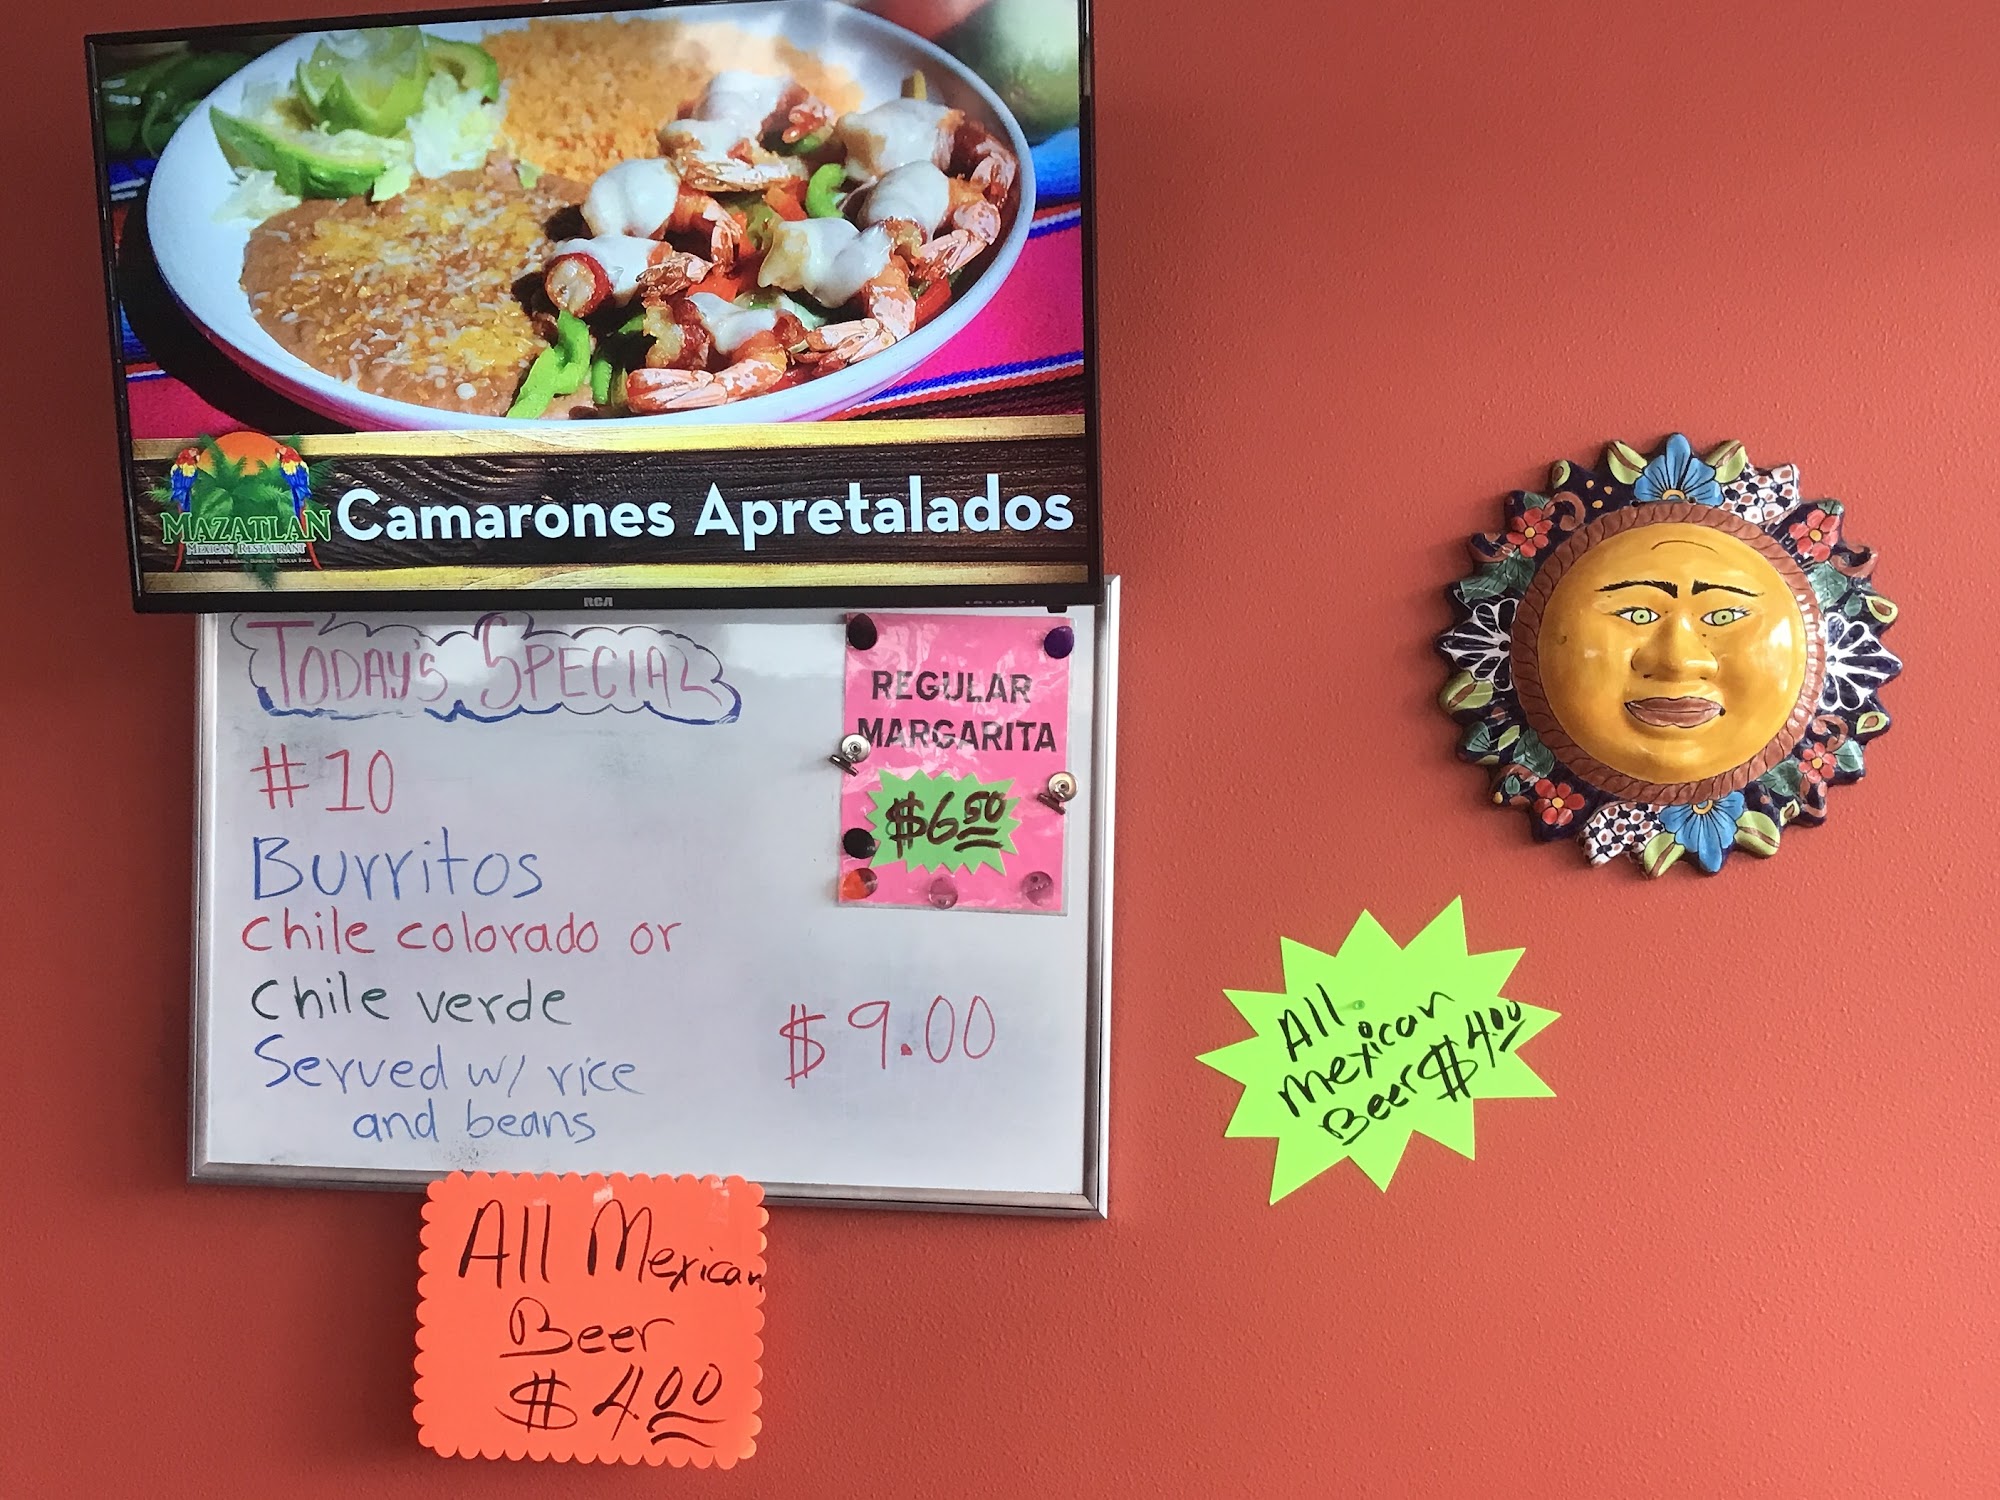 Camarones Apretalados
MAZATLAN
MEXICAN RESTAURANT
RCA
TODAY'S SPECIAL
#10
Burritos
chile colorado or
chile verde
Served w/ rice
and beans
$9.00
REGULAR
MARGARITA
$6.50
All
Mexican
Beer $4.00
All Mexican
Beer
$4.00